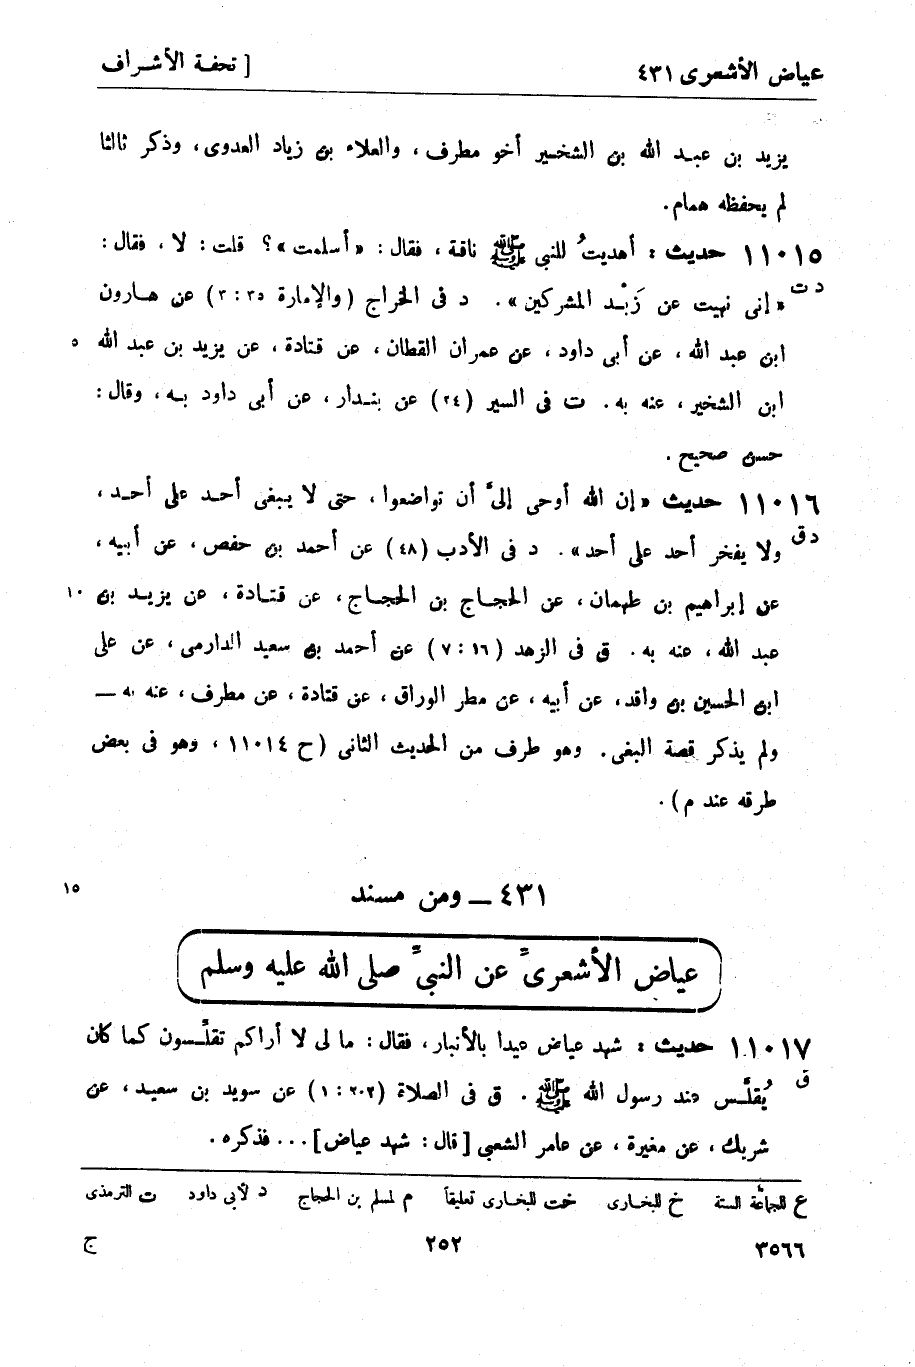 عياض الأشعرى ٤٣١
[ تحفة الأشراف
يزيد بن عبد الله بن الشخير أخو مطرف، والعلاء بن زياد العدوى، وذكر ثالثا
لم يحفظه همام.
١١٠١٥ حديث : أهديتُ للنبي ﷺ ناقة، فقال: «أسلمت»؟ قلت: لا، فقال:
د ت
«إنى نهيت عن زَبْد المشركين». د فى الخراج (والإمارة ٣٥ : ٢) عن هارون
ابن عبد الله، عن أبى داود، عن عمران القطان، عن قتادة، عن يزيد بن عبد الله ٥
ابن الشخير، عنه به. ت فى السير (٢٤) عن بندار، عن أبى داود به، وقال:
حسن صحيح.
١١٠١٦ حديث «إن الله أوحى إلىَّ أن تواضعوا، حتى لا يبغى أحد على أحد،
د ق
ولا يفخر أحد على أحد». د فى الأدب (٤٨) عن أحمد بن حفص، عن أبيه،
عن إبراهيم بن طهمان، عن الحجاج بن الحجاج، عن قتادة، عن يزيد بن ١٠
عبد الله، عنه به. ق فى الزهد (١٦ : ٧) عن أحمد بن سعيد الدارمى، عن على
ابن الحسين بن واقد، عن أبيه، عن مطر الوراق، عن قتادة، عن مطرف، عنه به ــ
ولم يذكر قصة البغى. وهو طرف من الحديث الثانى (ح ١١٠١٤، وهو فى بعض
طرقه عند م).
٤٣١ ــ ومن مسند ١٥
عياض الأشعرىّ عن النبىّ صلى الله عليه وسلم
١١٠١٧ حديث : شهد عياض عيدا بالأنبار، فقال: ما لى لا أراكم تقلّسون كما كان
ق
يُقلَّس عند رسول الله ﷺ. ق فى الصلاة (٢٠٢ : ١) عن سويد بن سعيد، عن
شريك، عن مغيرة، عن عامر الشعبى [قال: شهد عياض]... فذكره.
ع للجماعة الستة خ للبخارى خت للبخارى تعليقاً م لمسلم بن الحجاج د لأبى داود ت الترمذى
٣٥٦٦ ٢٥٢ ج